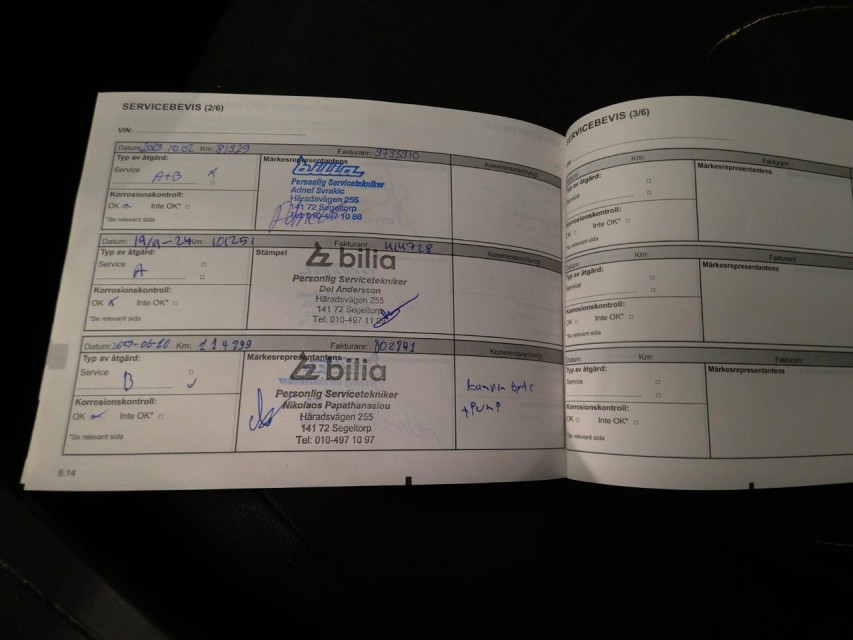 SERVICEBEVIS (2/6)
VIN:
Datum: 2023 10.02 Km: 81929 Fakturanr: 3795910 Kommentarer/övrigt
Typ av åtgärd: Märkesrepresentantens
Service A+B
bilia
Personlig Servicetekniker
Adnel Svrakic
Häradsvägen 255
141 72 Segeltorp
Tel: 010-497 10 88
Korrosionskontroll:
OK Inte OK*
*Se relevant sida
Datum: 19/9-24 Km: 101251 Fakturanr: 414728 Kommentarer/övrigt
Typ av åtgärd: Stämpel
Service A
bilia
Personlig Servicetekniker
Del Andersson
Häradsvägen 255
141 72 Segeltorp
Tel: 010-497 11
Korrosionskontroll:
OK Inte OK*
*Se relevant sida
Datum: Km: 114999 Fakturanr: 802841 Kommentarer/övrigt
Typ av åtgärd: Märkesrepresentantens
Service B
bilia
Personlig Servicetekniker
Nikolaos Papathanasiou
Häradsvägen 255
141 72 Segeltorp
Tel: 010-497 10 97
+ PUMP
Korrosionskontroll:
OK Inte OK*
*Se relevant sida
6:14
SERVICEBEVIS (3/6)
Km: Fakturanr:
Typ av åtgärd: Märkesrepresentantens
Service
Korrosionskontroll:
OK Inte OK*
*Se relevant sida
Km: Fakturanr:
Typ av åtgärd: Märkesrepresentantens
Service
Korrosionskontroll:
OK Inte OK*
*Se relevant sida
Datum: Km: Fakturanr:
Typ av åtgärd: Märkesrepresentantens
Service
Korrosionskontroll:
OK Inte OK*
*Se relevant sida